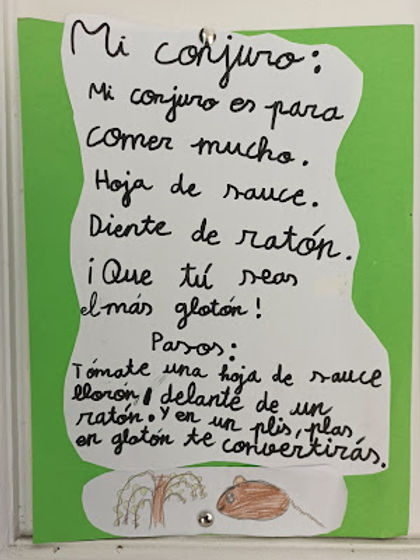 Mi conjuro:
Mi conjuro es para
comer mucho.
Hoja de sauce.
Diente de ratón.
¡Que tú seas
el más glotón!
Pasos:
Tómate una hoja de sauce
llorón, delante de un
ratón. y en un plis, plas
en glotón te convertirás.